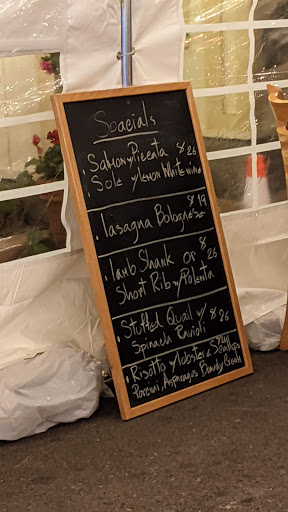 Specials
. Salmon Piccata $26
. Sole w/lemon White wine
. lasagna Bolognese $19
. lamb Shank or $25
Short Rib w/Polenta
. Stuffed Quail w/ $26
Spinach Ravioli
. Risotto w/lobster & Scallops
Porcini, Asparagus Brandy Cream